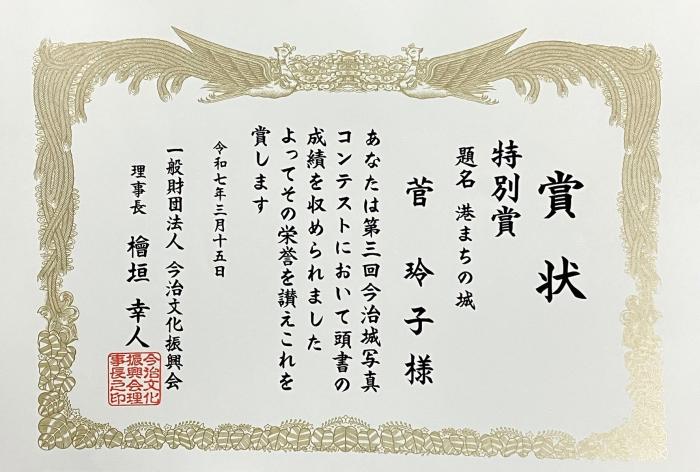 賞状
特別賞
題名 港まちの城
菅 玲子様
あなたは第三回今治城写真
コンテストにおいて頭書の
成績を収められました
よってその栄誉を讃えこれを
賞します
令和七年三月十五日
一般財団法人 今治文化振興会
理事長 檜垣 幸人
今治文化
振興会理
事長之印